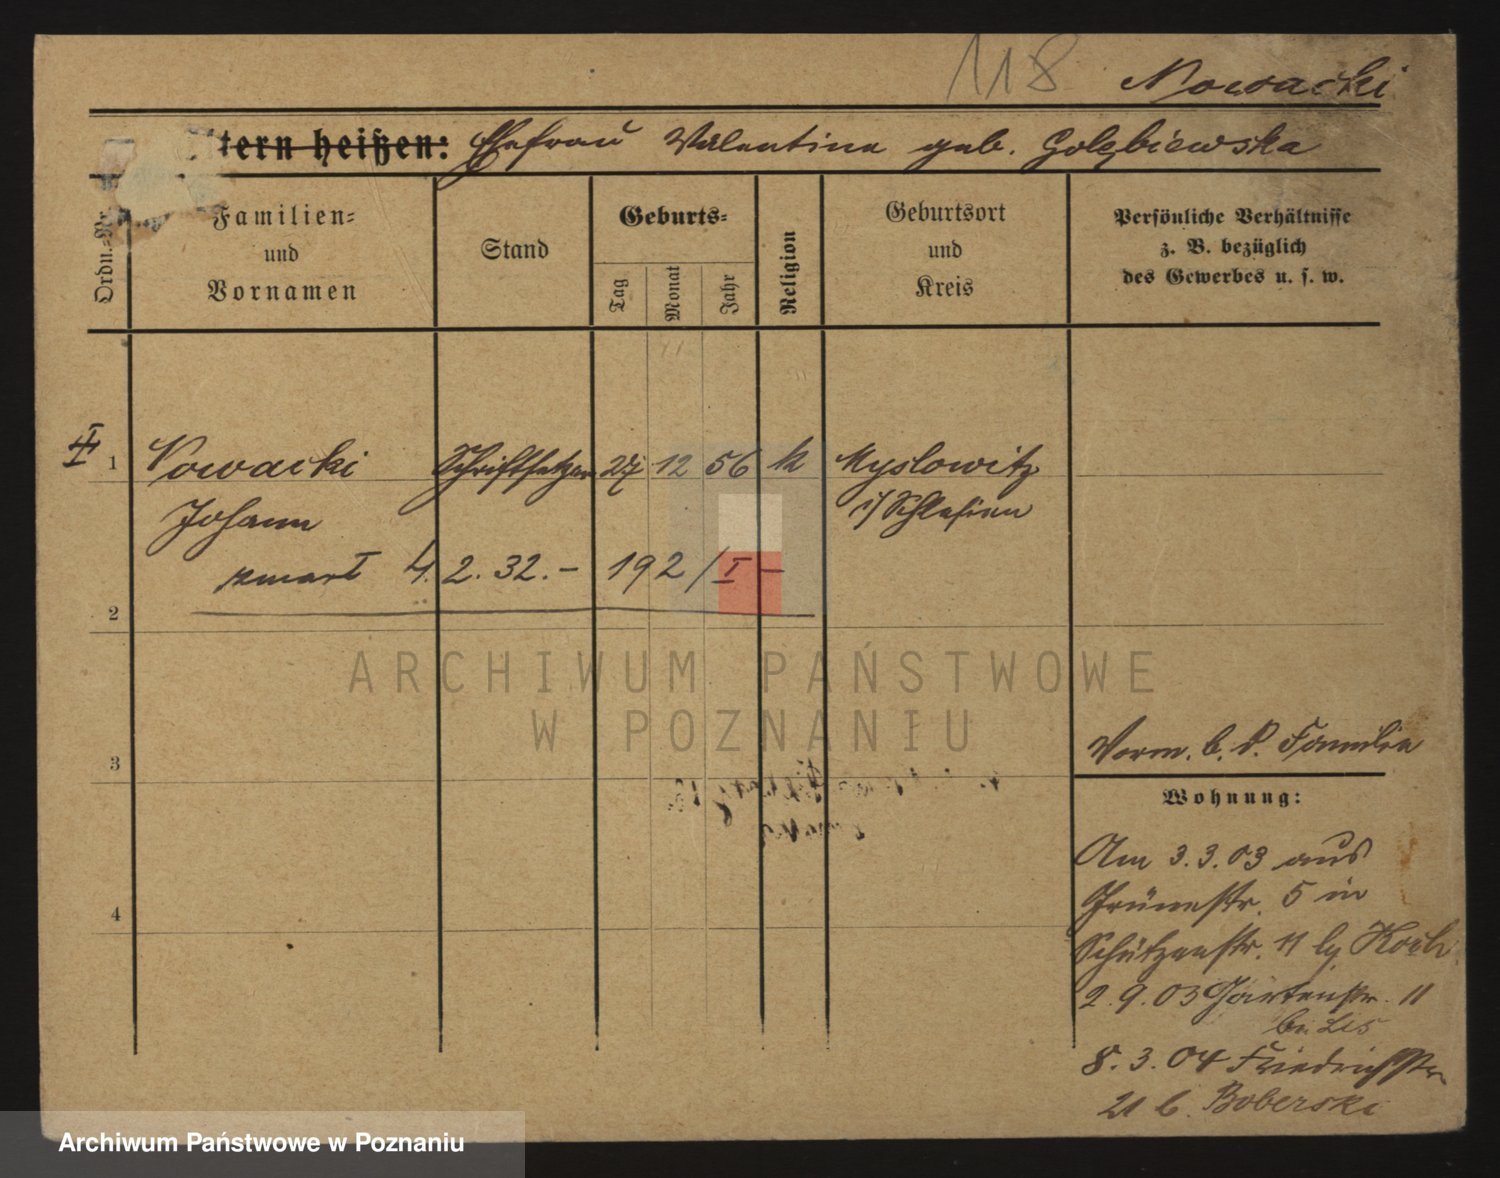 118 Nowacki
Eltern heißen: Ehefrau Valentine geb. Golębiewska
Ordn.-Nr.
Familien-
und
Vornamen
Stand
Geburts-
Tag
Monat
Jahr
Religion
Geburtsort
und
Kreis
Persönliche Verhältnisse
z. B. bezüglich
des Gewerbes u. s. w.
1 Nowacki Schriftsetzer 27 12 56 k Myslowitz
Johann i/Schlesien
zmarł 4.2.32.– 192/I–
2
ARCHIWUM PAŃSTWOWE
W POZNANIU
Vorm. b. d. Familie
3
Wohnung:
Am 3.3.03 aus
Grünestr. 5 in
4
Schützenstr. 11 bei Koch
2.9.03 Gartenstr. 11
bei Lis
8.3.04 Friedrichstr.
21 b. Boberski
Archiwum Państwowe w Poznaniu